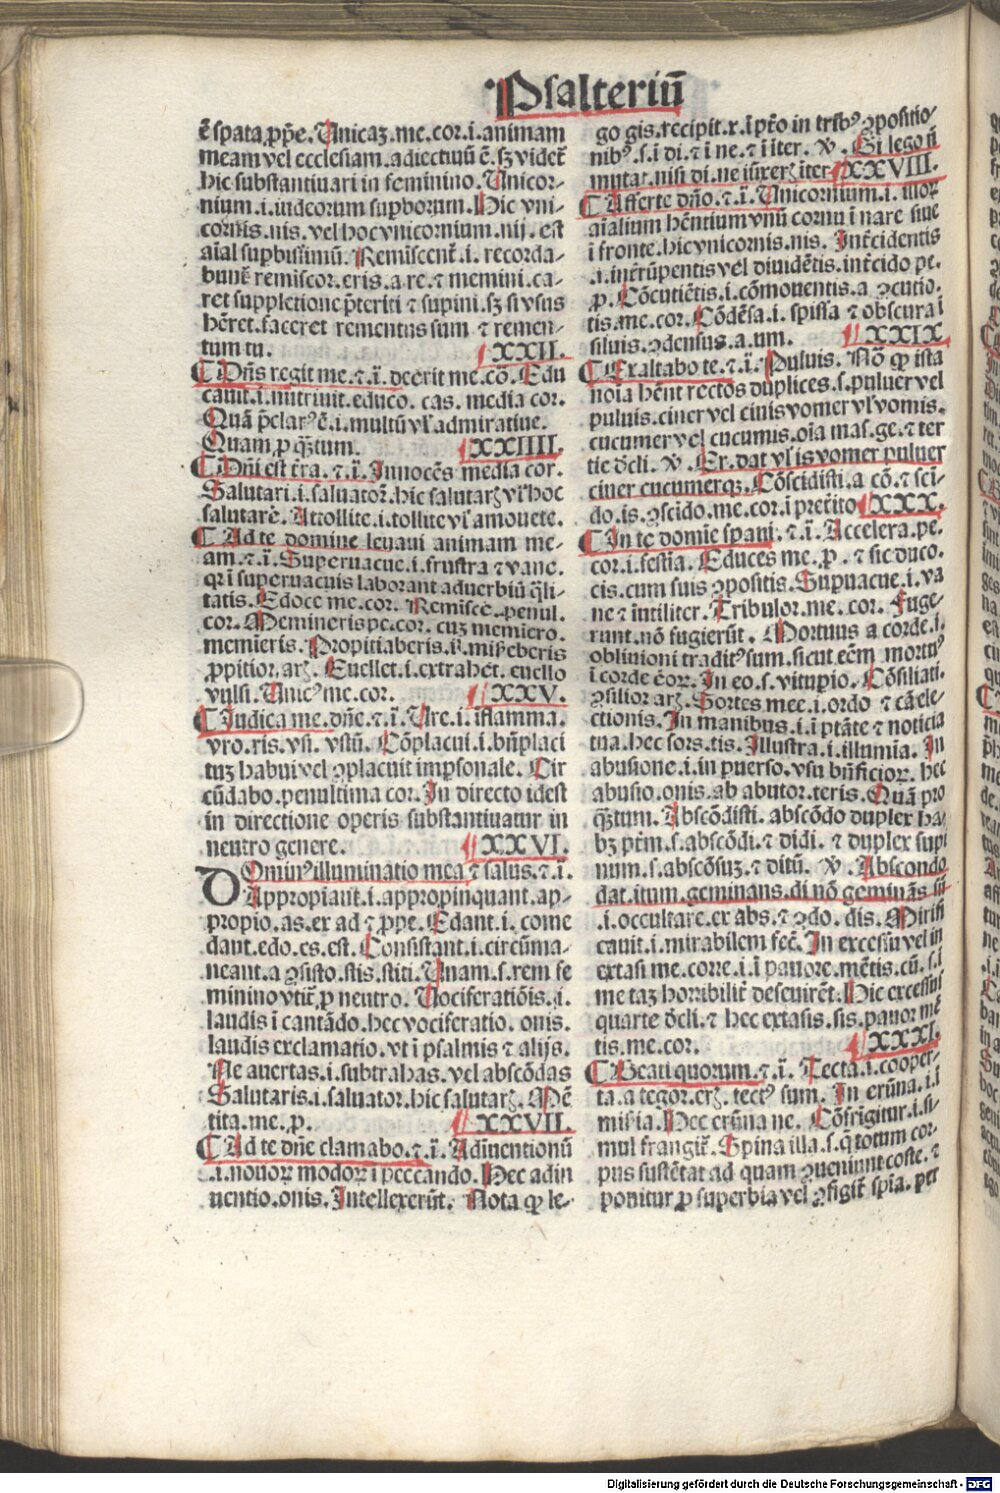 Psalteriū
ē spata ꝓp̄e. Unicaꝫ.me.cor.i.animam
meam vel ecclesiam.adiectiuū ē.sꝫ videt᷑
hic substantiuari in feminino. Unicor-
nium.i.iudeorum supborum. Hic vni-
cornis.nis. vel hoc vnicornium.nij. est
aīal supbissimū. Reminiscent᷑.i. recorda-
bunt᷑ remiscor.eris.a re.⁊ memini.ca-
ret suppletione p̄teriti ⁊ supini.sꝫ si vsus
hēret.faceret rementus sum ⁊ remen-
tum tu. XXII.
Dn̄s regit me.⁊.ī. deerit me.cō. Edu
cauit.i.nutriuit.educo. cas. media cor.
Quā p̄clarꝰ ē.i.multū vl̓ admiratiue.
Quam.ꝓ qꝫtum. XXIIII.
Dn̄i est t̄ra.⁊.ī. Innocēs media cor.
Salutari.i.saluatoꝛ.hic salutarꝫ vl̓ hoc
salutare. Attollite.i.tollite vl̓ amouete.
Ad te domine leuaui animam me-
am.⁊.ī. Superuacue.i.frustra ⁊ vane.
qꝛ ī superuacuis laborant aduerbiū q̄li-
tatis. Edoce me.cor. Remisce.penul.
cor. Memineris pe.cor. cuꝫ memicro.
memieris. Propitiaberis. misereberis
ꝓpitior.arꝫ. Euellet.i.extrahet. euello
vulsi. Unicꝰ me.cor. XXV.
Judica me.dn̄e.⁊.ī. Ure.i.īflamma.
vro.ris.vsi. vstū. Cōplacui.i.bn̄placi
tuꝫ habui vel ꝯplacuit impsonale. Cir
cūdabo.penultima cor. In directo idest
in directione operis substantiuatur in
neutro genere. XXVI.
Dominꝰ illuminatio mea ⁊ salus.⁊.ī.
Appropiant.i.appropinquant.ap-
propio.as.ex ad ⁊ ꝓpe. Edant.i. come
dant.edo.es.est. Consistant.i.circūma-
neant.a ꝯsisto.stis.stiti. Unam.s.rem fe
minino vtit᷑.ꝓ neutro. Uociferatiōis.i.
laudis ī cantādo.hec vociferatio. onis.
laudis exclamatio.vt ī psalmis ⁊ alijs.
Ne auertas.i.subtrahas.vel abscōdas
Salutaris.i.saluator.hic salutarꝫ. Mē
tita.me.ꝓ. XXVII.
Ad te dn̄e clamabo.⁊.ī. Adiuentionū
.i.nouoꝝ modoꝝ ī peccando. Hec adin
uentio.onis. Intellexerūt. Nota qꝙ le-
go gis.recipit.x.ī pt̄o in tribꝰ ꝯpositio-
nibꝰ.s.i di.⁊ ī ne.⁊ ī iter. ꝟ. Si lego n̄
mutat.nisi di.ne iūxerꝫ iter. XXVIII.
Afferte dn̄o.⁊.ī. Unicornium.i. illoꝝ
aīalium hn̄tium vnū cornu ī nare siue
ī fronte.hic vnicornis.nis. Int̄cidentis
.i.int̄rūpentis vel diuidētis.int̄cido pe.
ꝓ. Cōcutiētis.i.cōmouentis.a ꝯcutio.
tis.me.cor. Cōdēsa.i. spissa ⁊ obscura ī
siluis.ꝯdensus.a.um. XXIX.
Exaltabo te.⁊.ī. Puluis. Nō qꝙ ista
noīa hn̄t rectos duplices.s.puluer vel
puluis.ciner vel cinis vomer vl̓ vomis.
cucumer vel cucumis.oīa mas.ge.⁊ ter
tie dcli. ꝟ. Er.dat vl̓ is vomer puluer
ciner cucumerqꝫ. Cōscidisti.a cō.⁊ scī-
do.is.ꝯscido.me.cor.ī pret̄ito XXX.
In te domie spaui.⁊.ī. Accelera.pe.
cor.i.festia. Educes me.ꝓ. ⁊ sic duco.
cis.cum suis ꝯpositis. Supuacue.i.va
ne ⁊ intiliter. Tribulor.me. cor. Fuge-
runt.nō fugierūt. Mortuus a corde.i.
obliuioni traditꝰ sum.sicut eēm mortuꝰ
ī corde eoꝝ. In eo.s.vitupio. Cōsiliati.
ꝯsilior arꝫ. Sortes mee.i.ordo ⁊ cā ele-
ctionis. In manibus.i.ī ptāte ⁊ noticia
tua.hec sors.tis. Illustra.i.illumia. In
abusione.i.in puerso.vsu bn̄ficioꝝ. hec
abusio.onis.ab abutor.teris. Quā pro
qꝫtum. Abscōdisti. abscōdo duplex ha-
bꝫ pt̄m.s.abscōdi.⁊ didi. ⁊ duplex supi
num.s.abscōsuꝫ.⁊ ditū. ꝟ. Abscondo
dat.itum.geminans.di nō geminās sū
.i.occultare.ex abs.⁊ ꝯdo. dis. Mirifi
cauit.i.mirabilem fec̄. In excessu vel in
extasi me.corre.i.ī pauore.mētis.cū.s.i
me taꝫ horribilit᷑ deseuirēt. Hic excessus
quarte dcli.⁊ hec extasis.sis.pauor mē
tis.me.cor. XXXI.
Beati quorum.⁊.ī. Tecta.i.cooper-
ta.a tegor.erꝫ. tectꝰ sum. In erūna.i.ī
misīa. Hec erūna ne. Cōfrigitur.i.si-
mul frangit᷑. Spina illa.s.q̄ totum cor-
pus sustētat ad quam ꝯueniunt coste.⁊
ponitur ꝓ superbia vel ꝯfigit᷑ spīa.per
Digitalisierung gefördert durch die Deutsche Forschungsgemeinschaft - DFG